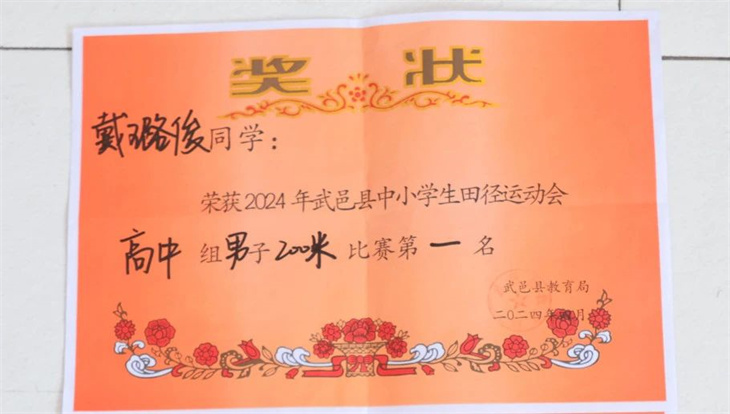 奖 状
戴璐俊同学：
荣获2024年武邑县中小学生田径运动会
高中组男子200米比赛第一名
武邑县教育局
二〇二四年 月